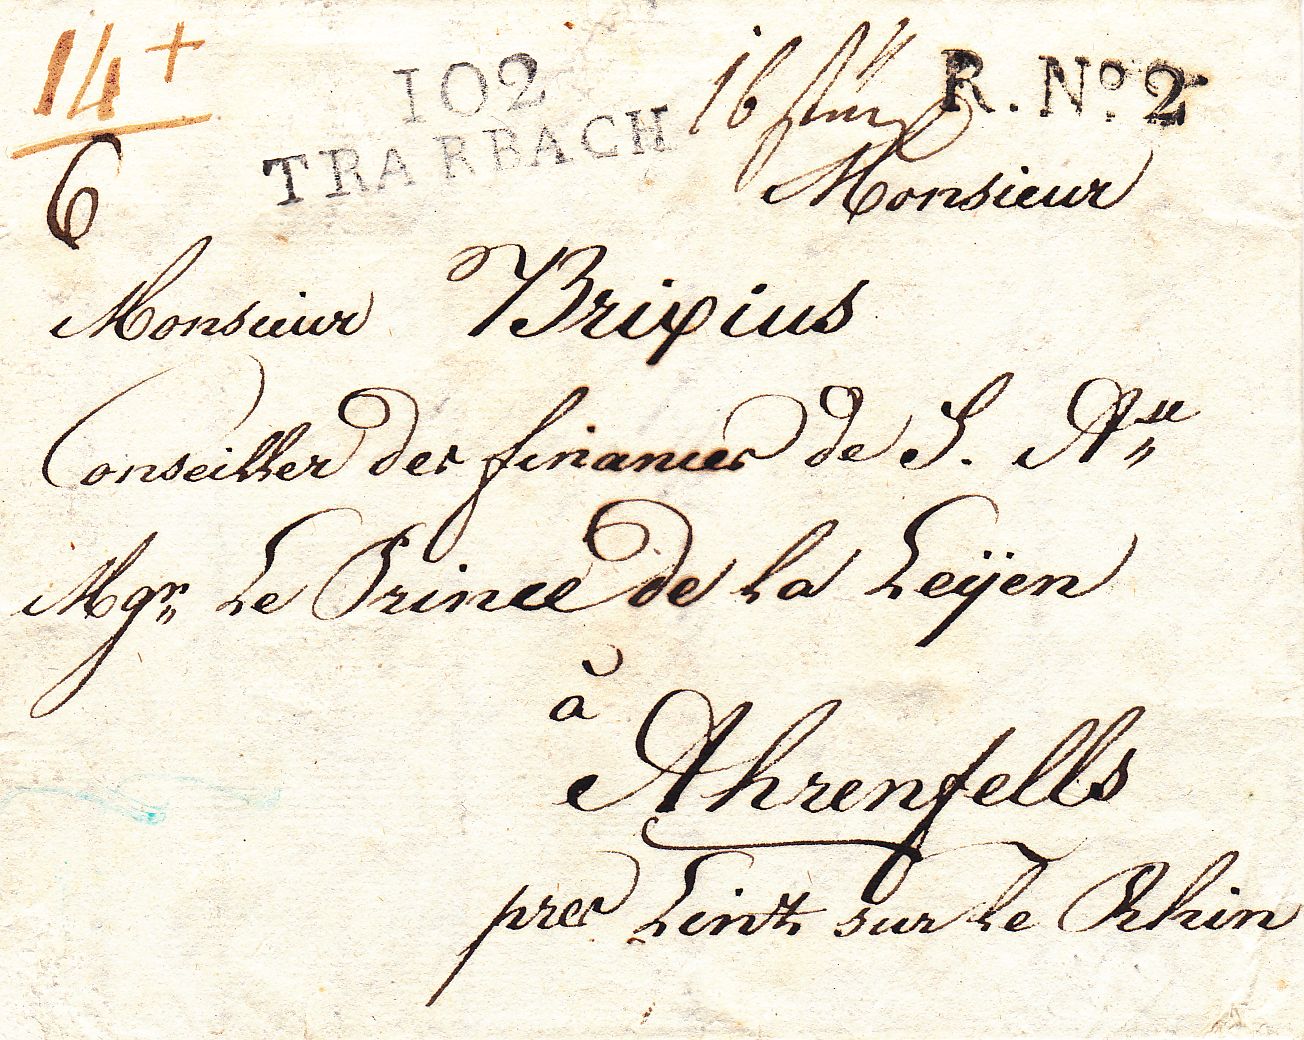 14 +
6
102
TRARBACH
R. No. 2
Monsieur
Monsieur Brixius
Conseiller des finances de S. Asse
Mgr Le Prince de la Leÿen
à
Ahrenfells
pres Lintz sur le Rhin